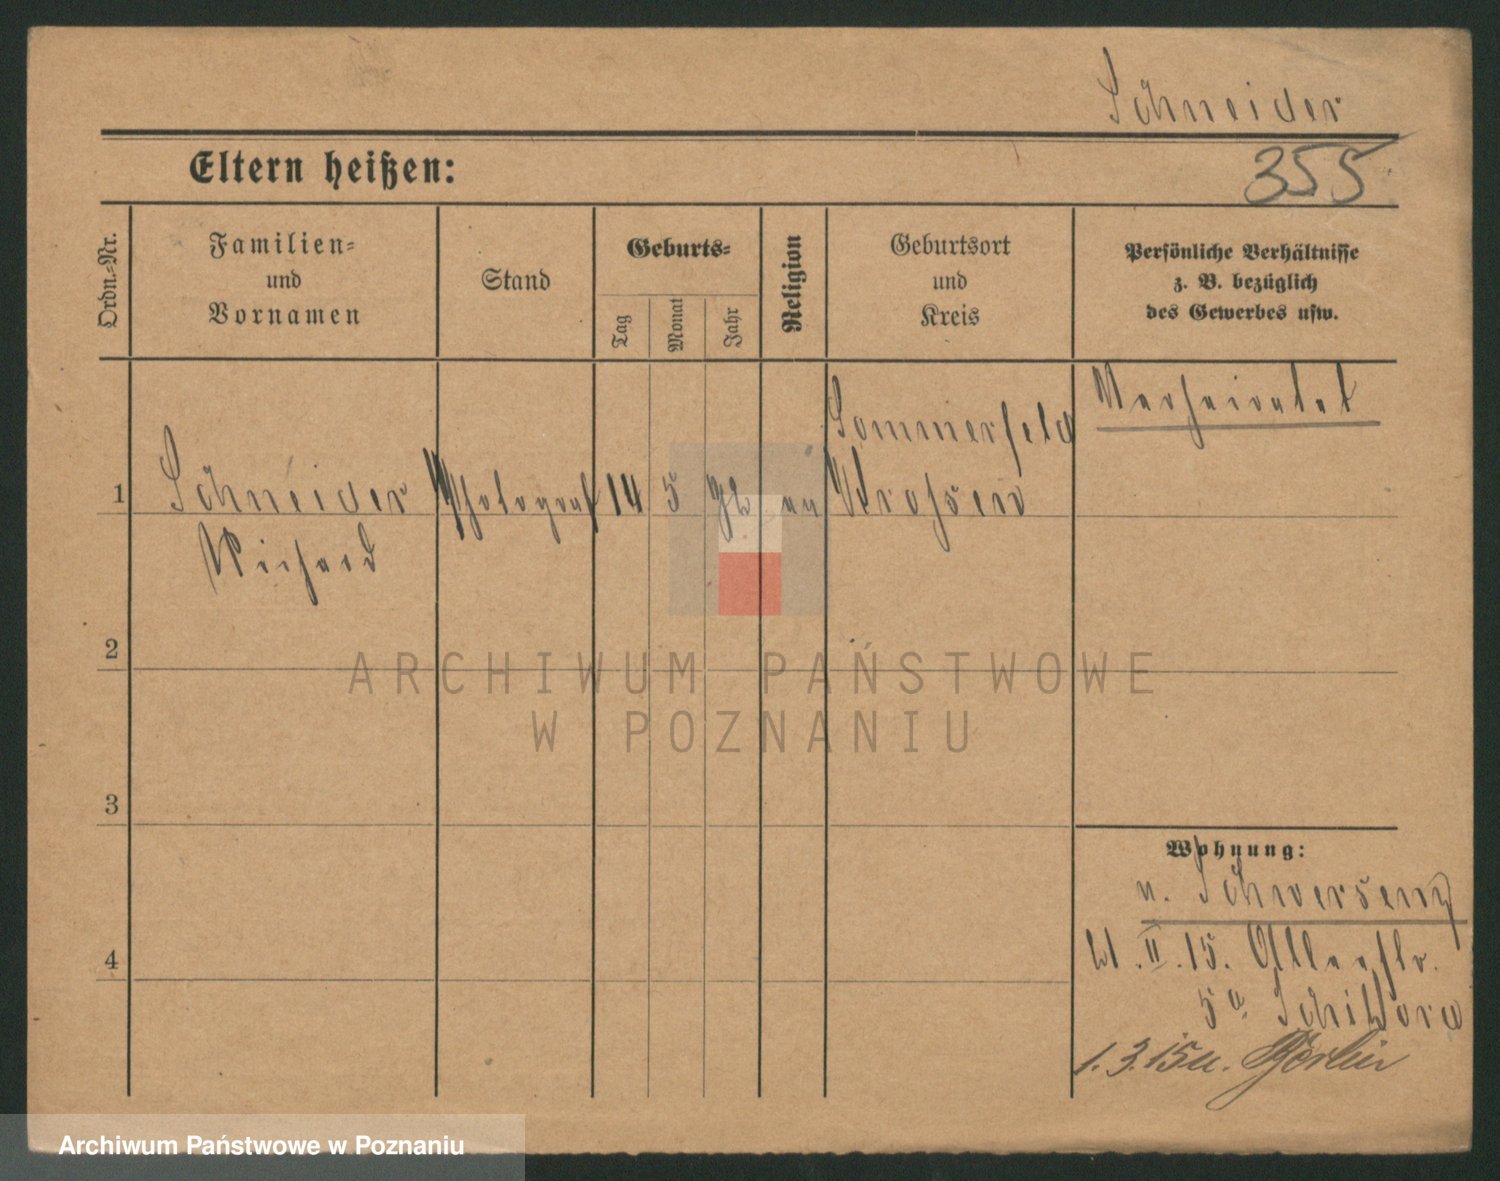 Schneider
Eltern heißen:
355
Ordn.-Nr.
Familien-
und
Vornamen
Stand
Geburts-
Tag
Monat
Jahr
Religion
Geburtsort
und
Kreis
Persönliche Verhältnisse
z. B. bezüglich
des Gewerbes usw.
Verheiratet
Sommerfeld
1
Schneider
Photograf
14
5
Krossen
Richard
2
ARCHIWUM PAŃSTWOWE
W POZNANIU
3
Wohnung:
n. Schwersenz
4
II. 15.
5a
1.3.15 n. Berlin
Archiwum Państwowe w Poznaniu